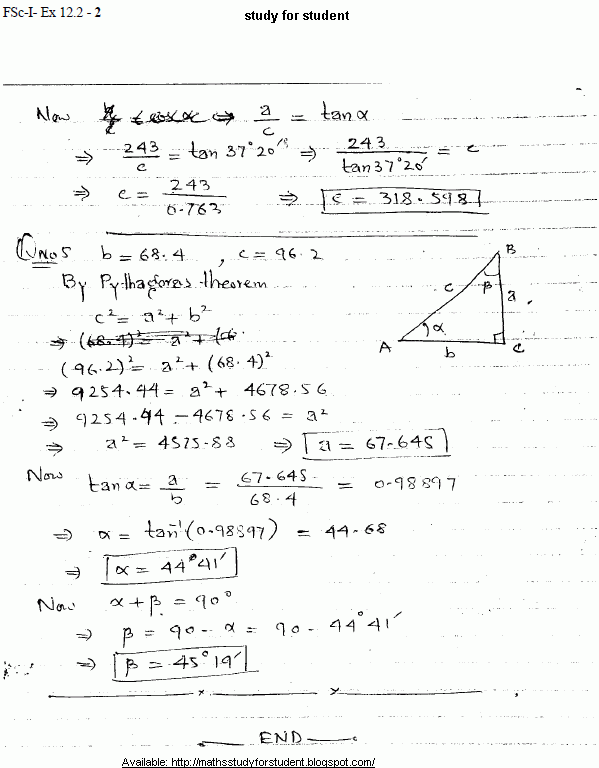 FSc-I- Ex 12.2 - 2
study for student
Now a/c = tanα
⇒ 243/c = tan 37°20′ ⇒ 243/tan37°20′ = c
⇒ c = 243/0.763 ⇒ c = 318.598
QNo5 b = 68.4 , c = 96.2
By Pythagoras theorem
c² = a² + b²
⇒ (68.4)² = a² +
(96.2)² = a² + (68.4)²
⇒ 9254.44 = a² + 4678.56
⇒ 9254.44 - 4678.56 = a²
⇒ a² = 4575.88 ⇒ a = 67.645
B
c
β
a
α
A
b
C
Now tanα = a/b = 67.645/68.4 = 0.98897
⇒ α = tan⁻¹(0.98897) = 44.68
⇒ α = 44°41′
Now α + β = 90°
⇒ β = 90 - α = 90 - 44°41′
⇒ β = 45°19′
x x
END
Available: http://mathsstudyforstudent.blogspot.com/